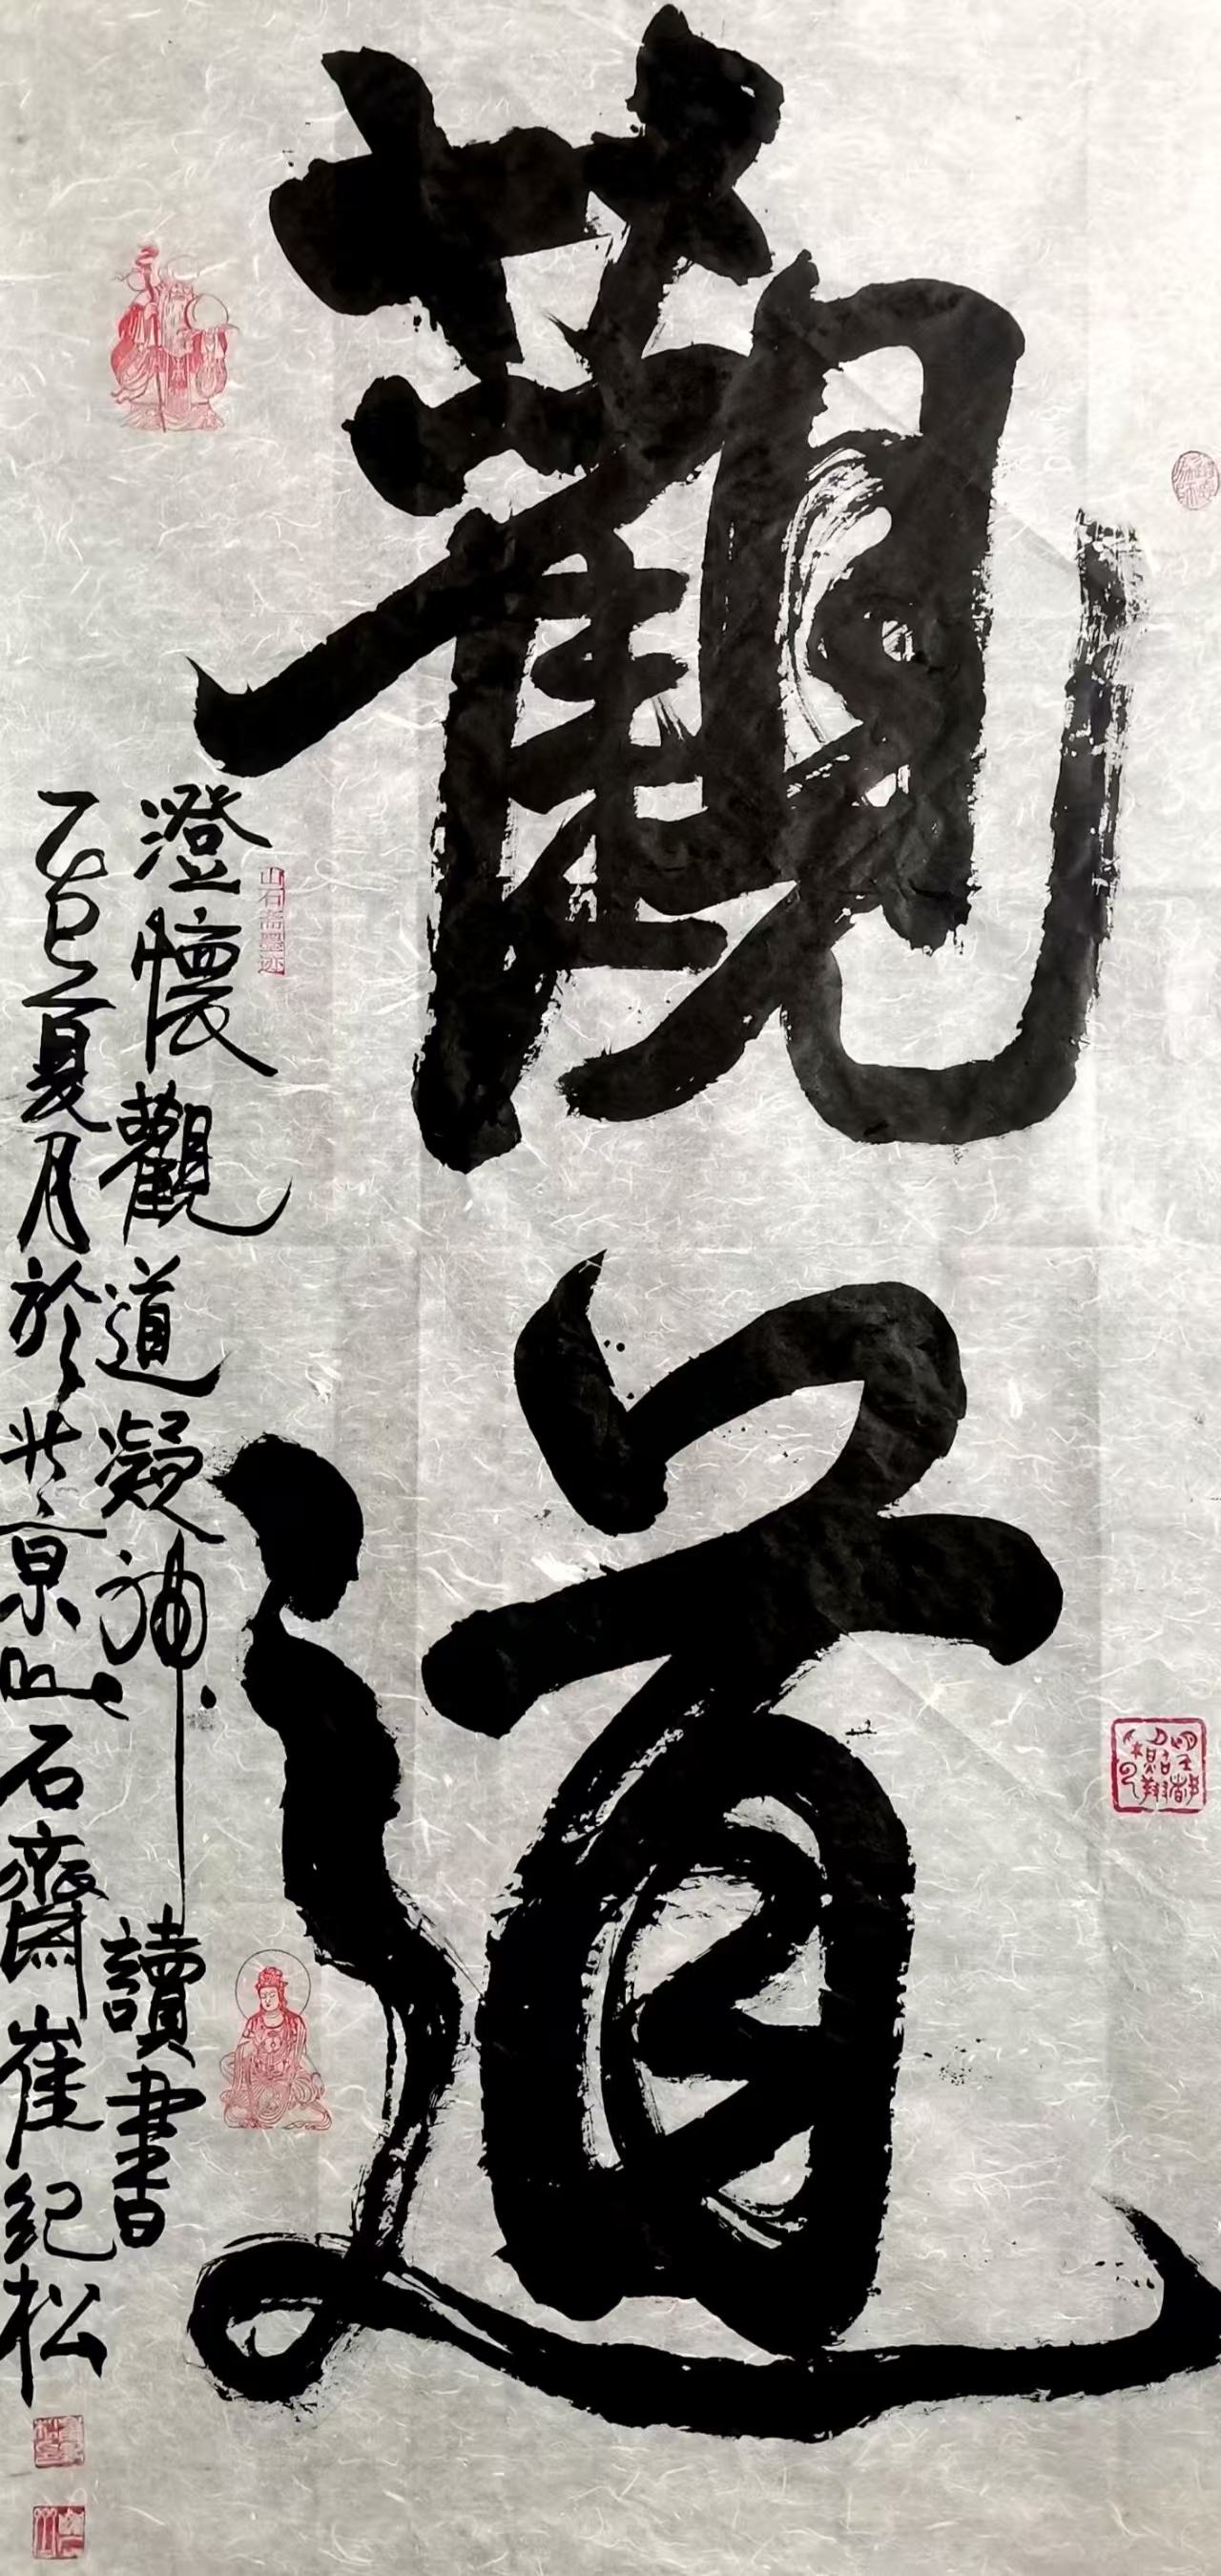 觀道
澄懷觀道凝神讀書
乙巳夏月於北京山石齋崔紀松
山石斋墨迹